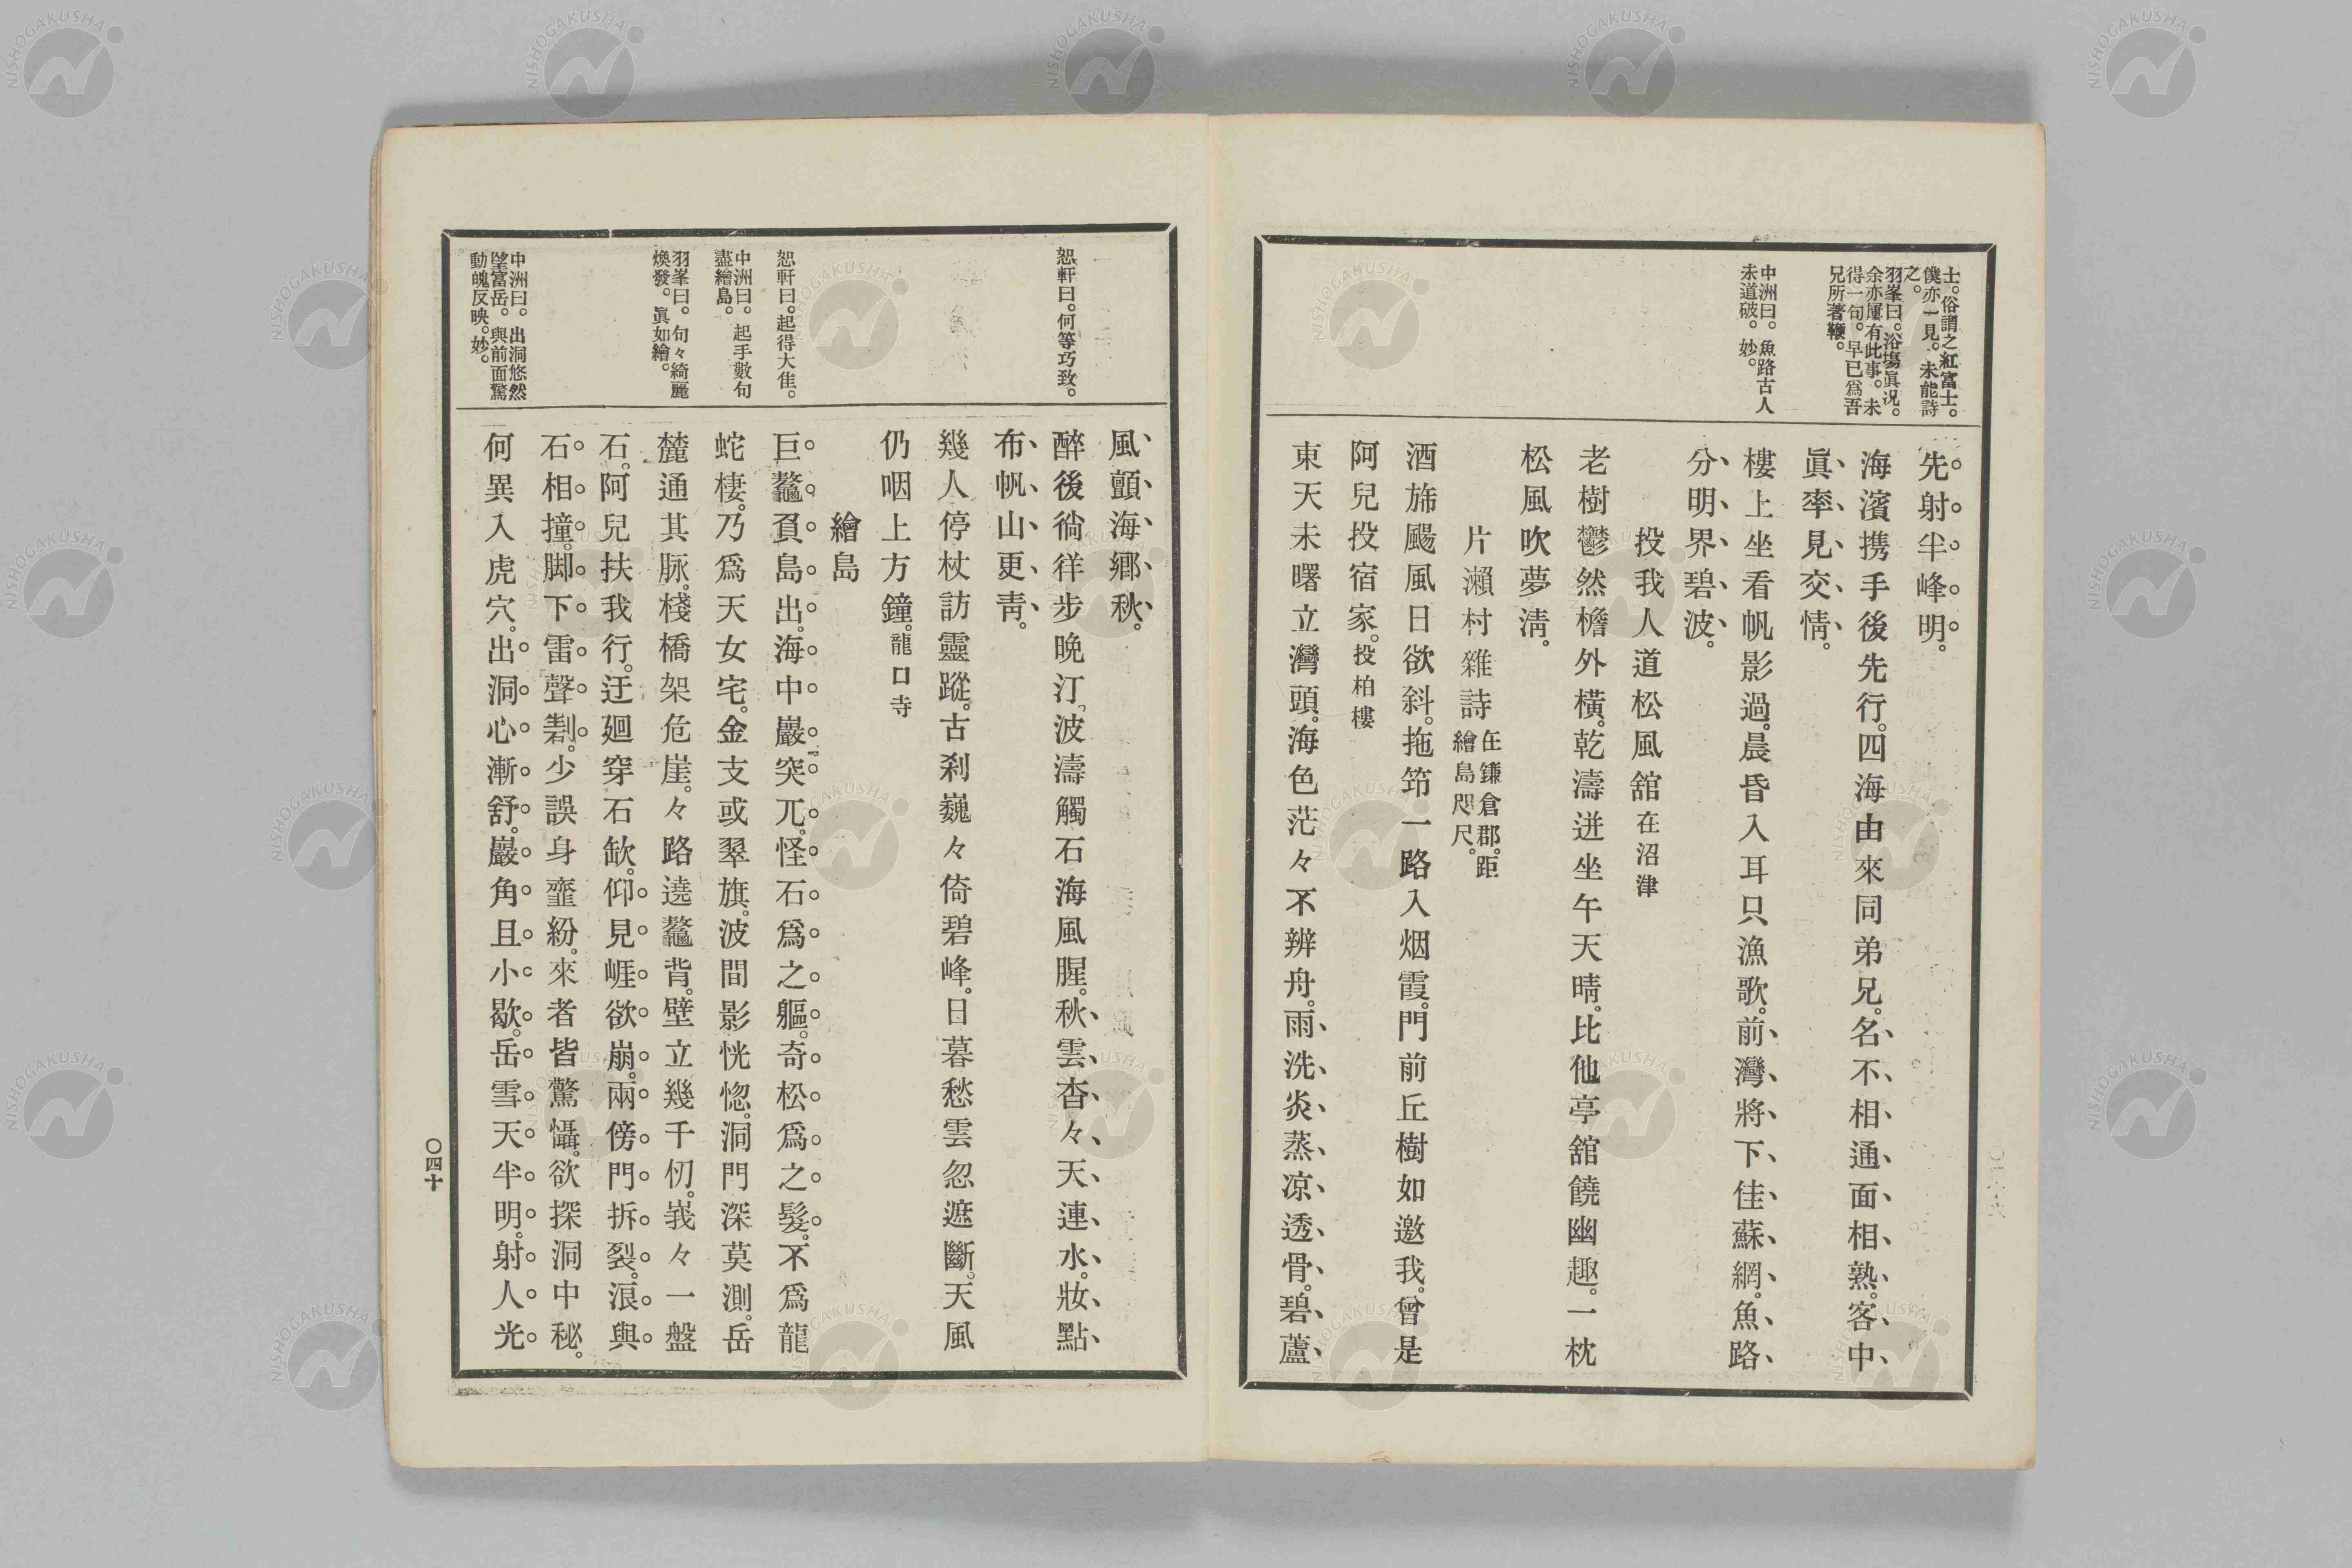 士。俗謂之紅富士。
僕亦一見。未能詩
之。
羽峯曰。浴場眞况。
余亦屢有此事。未
得一句。早已爲吾
兄所著鞭。
中洲曰。魚路古人
未道破。妙。
先射半峰明。
海濱携手後先行。四海由來同弟兄。名不相通面相熟。客中
眞率見交情。
樓上坐看帆影過。晨昏入耳只漁歌。前灣將下佳蘇網。魚路
分明界碧波。
投我人道松風舘在沼津
老樹鬱然檐外橫。乾濤迸坐午天晴。比他亭舘饒幽趣。一枕
松風吹夢淸。
片瀨村雜詩在鎌倉郡。距
繪島咫尺。
酒斾颺風日欲斜。拖筇一路入烟霞。門前丘樹如邀我。曾是
阿兒投宿家。投柏樓
東天未曙立灣頭。海色茫々不辨舟。雨洗炎蒸凉透骨。碧蘆
恕軒曰。何等巧致。
恕軒曰。起得大隹。
中洲曰。起手數句
盡繪島。
羽峯曰。句々綺麗
煥發。眞如繪。
中洲曰。出洞悠然
望富岳。與前面驚
動魄反映。妙。
風顫海鄕秋。
醉後徜徉步晩汀。波濤觸石海風腥。秋雲杳々天連水。妝點
布帆山更靑。
幾人停杖訪靈蹤。古刹巍々倚碧峰。日暮愁雲忽遮斷。天風
仍咽上方鐘。龍口寺
繪島
巨鼇負島出。海中巖突兀。怪石爲之軀。奇松爲之髮。不爲龍
蛇棲。乃爲天女宅。金支或翠旗。波間影恍惚。洞門深莫測。岳
麓通其脉。棧橋架危崖。々路遶鼇背。壁立幾千仞。峩々一盤
石。阿兒扶我行。迂廻穿石缺。仰見崕欲崩。兩傍門拆裂。浪與
石相撞。脚下雷聲劃。少誤身虀紛。來者皆驚懾。欲探洞中秘。
何異入虎穴。出洞心漸舒。巖角且小歇。岳雪天半明。射人光
〇四十